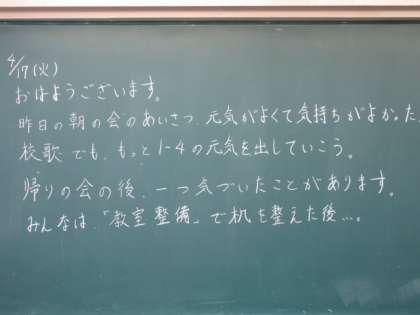 4/17(火)
おはようございます。
昨日の朝の会のあいさつ、元気がよくて気持ちがよかった。
校歌でも、もっと1-4の元気を出していこう。
帰りの会の後、一つ気づいたことがあります。
みんなは、「教室整備」で机を整えた後…。